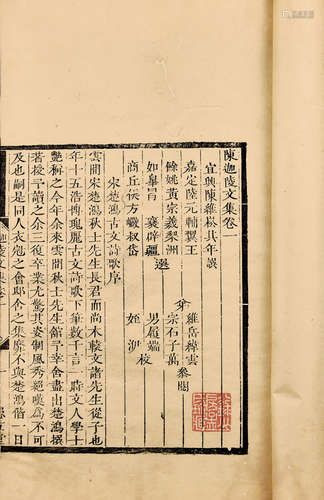 陳迦陵文集卷一
宜興陳維崧其年譔
嘉定陸元輔翼王
餘姚黃宗羲梨洲
如皐冒襄辟疆
商丘侯方巗叔岱
選
弟
維岳緯雲
宗石子萬
參閱
男履端
姪淛
校
宋楚鴻古文詩歌序
雲間宋楚鴻秋士先生長君而尚木轅文諸先生從子也
年十五浩博瑰麗古文詩歌下筆數千言一時文人學士
艶稱之今年余來雲間秋士先生館予幸舍盡出楚鴻撰
著授予讀之余三復卒業尤驚其姿制風秀絕嘆為不可
及也嗣後同人衣𥘉之會郎舍之集靡不與楚鴻偕一日